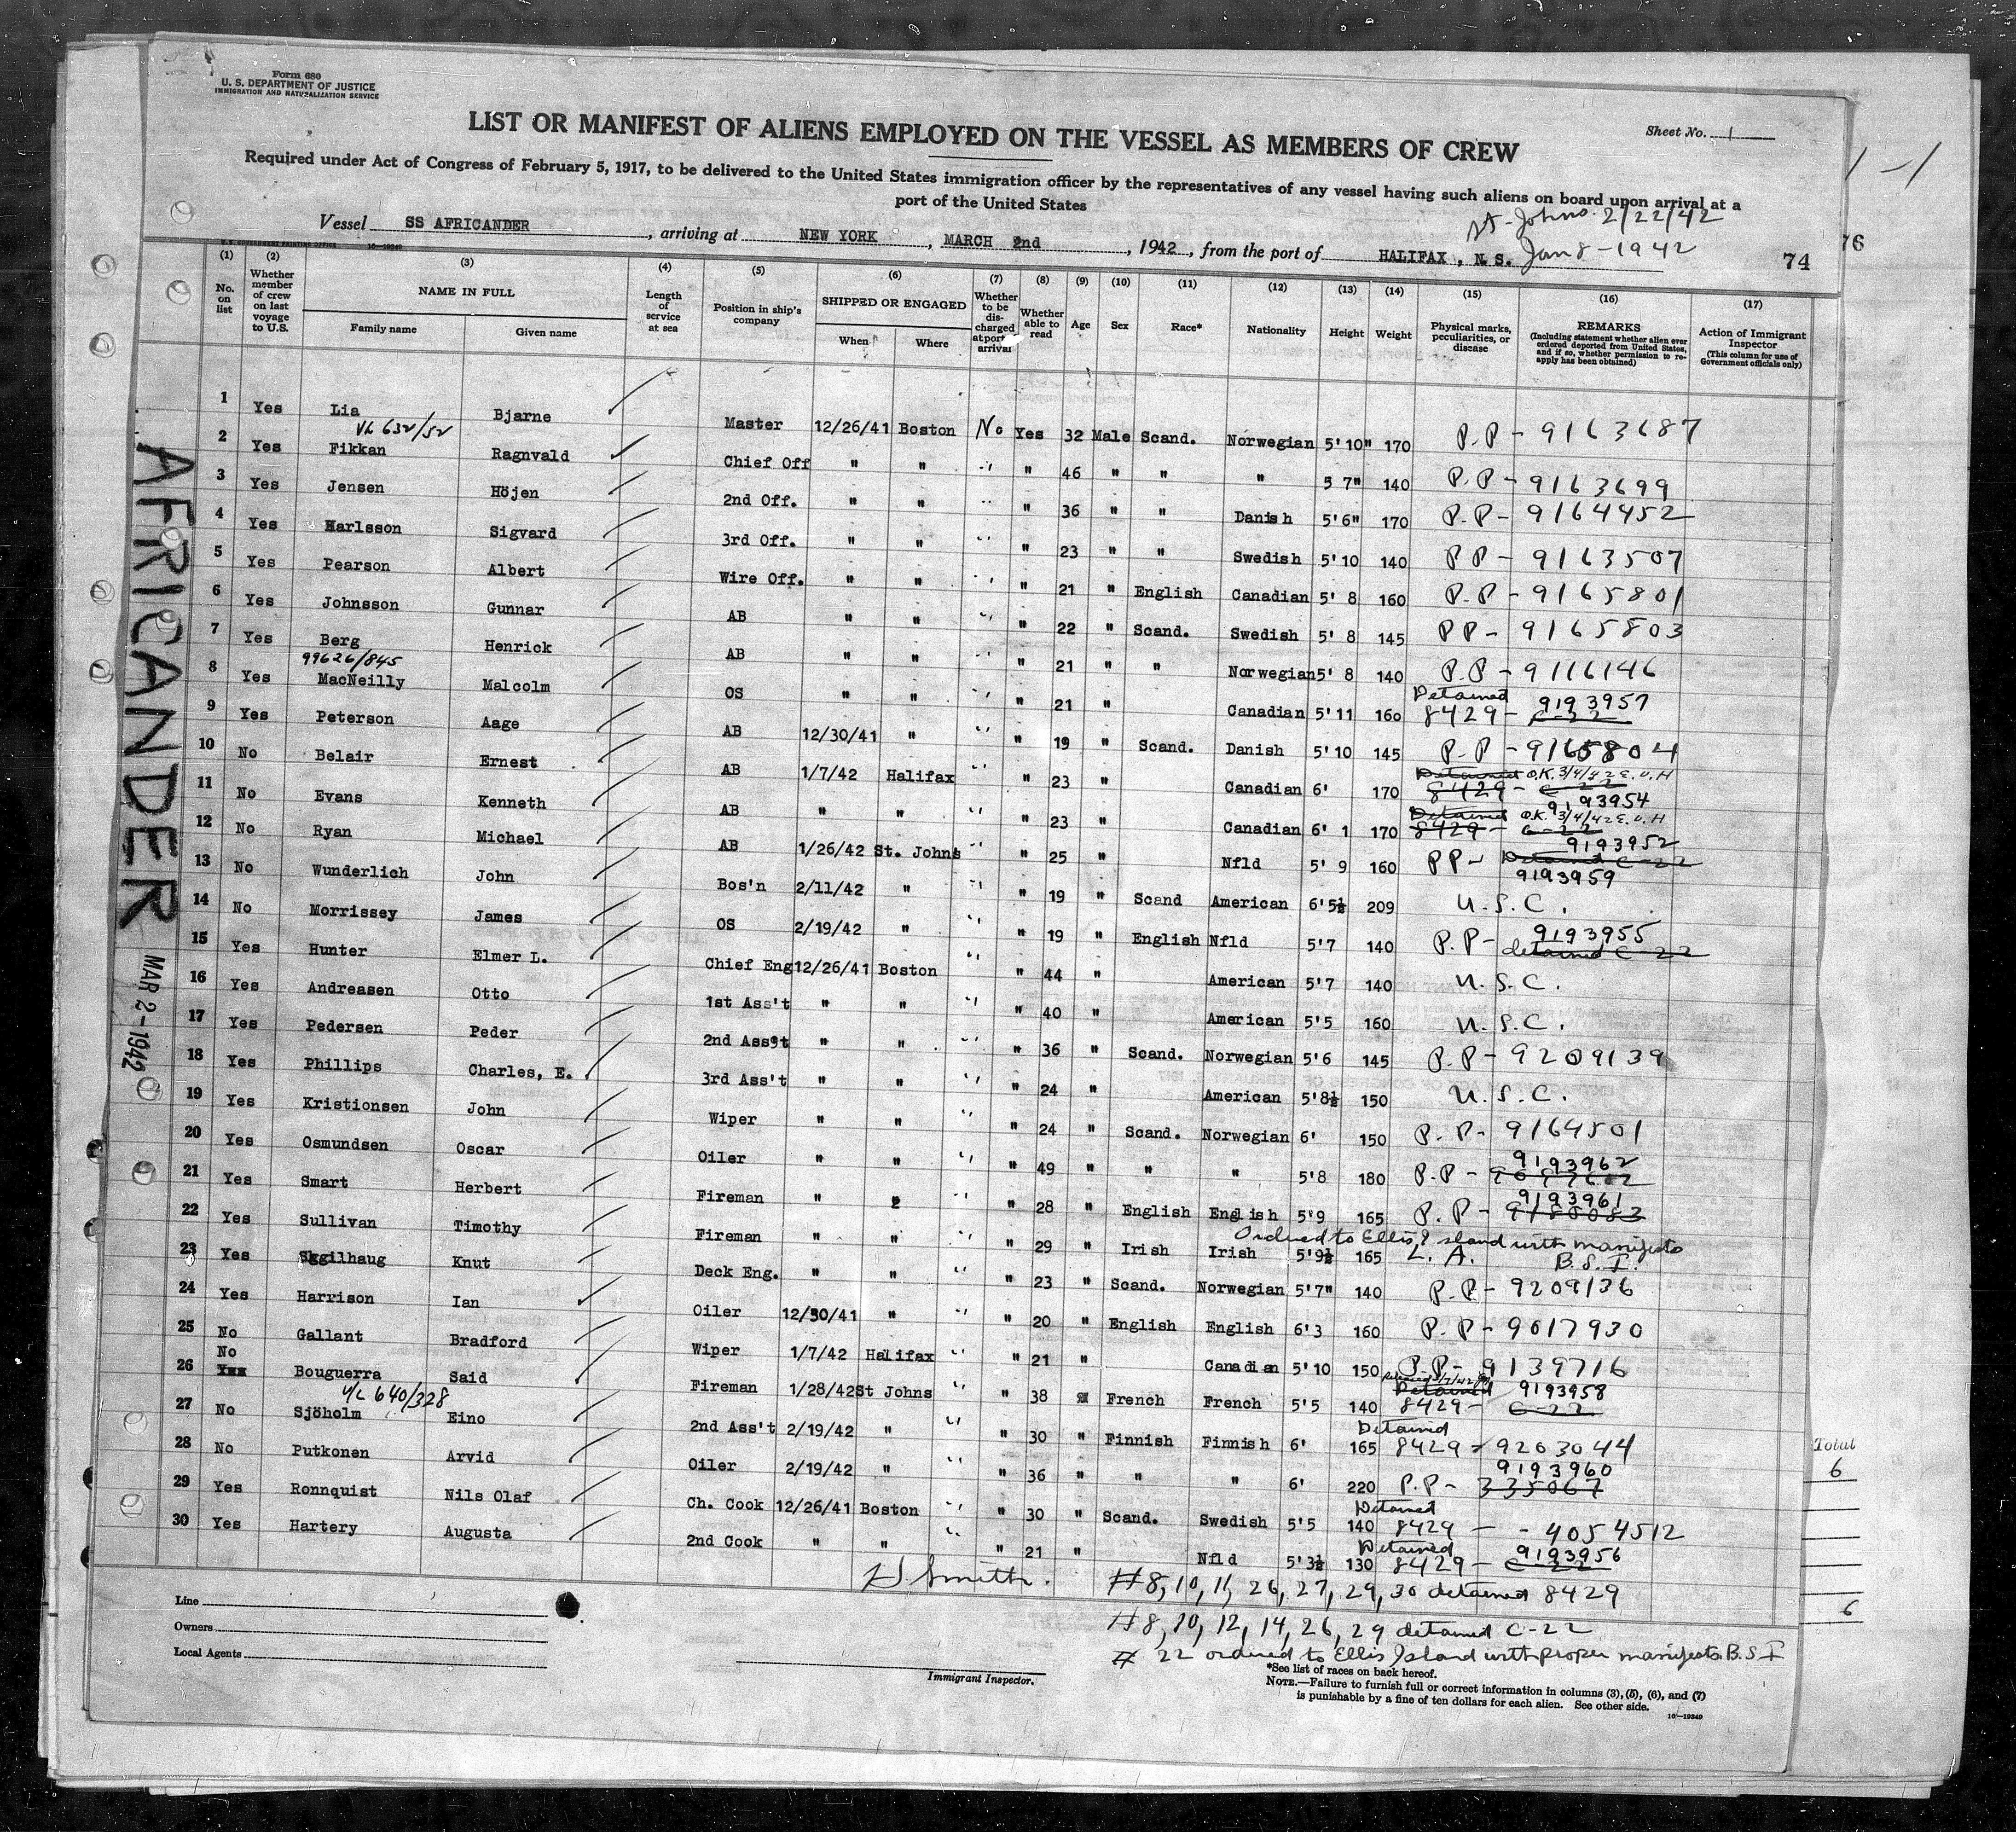 Form 680
U. S. DEPARTMENT OF JUSTICE
IMMIGRATION AND NATURALIZATION SERVICE
Sheet No. 1
LIST OR MANIFEST OF ALIENS EMPLOYED ON THE VESSEL AS MEMBERS OF CREW
Required under Act of Congress of February 5, 1917, to be delivered to the United States immigration officer by the representatives of any vessel having such aliens on board upon arrival at a
port of the United States
St. Johns. 2/22/42
Vessel SS AFRICANDER, arriving at NEW YORK, MARCH 2nd, 1942, from the port of HALIFAX, N.S. Jan 8-1942
74
76
U. S. GOVERNMENT PRINTING OFFICE 16-19349
(1) No. on list
(2) Whether member of crew on last voyage to U.S.
(3) NAME IN FULL Family name Given name
(4) Length of service at sea
(5) Position in ship's company
(6) SHIPPED OR ENGAGED When Where
(7) Whether to be discharged at port arrival
(8) Whether able to read
(9) Age
(10) Sex
(11) Race*
(12) Nationality
(13) Height
(14) Weight
(15) Physical marks, peculiarities, or disease
(16) REMARKS (Including statement whether alien ever ordered deported from United States, and if so, whether permission to re-apply has been obtained)
(17) Action of Immigrant Inspector (This column for use of Government officials only)
1 Yes Lia Bjarne Master 12/26/41 Boston No Yes 32 Male Scand. Norwegian 5'10" 170 P.P - 9163687
VL 632/52
2 Yes Fikkan Ragnvald Chief Off " " " " 46 " " " 5 7" 140 P.P - 9163699
3 Yes Jensen Höjen 2nd Off. " " " " 36 " " Danish 5'6" 170 P.P - 9164452
4 Yes Karlsson Sigvard 3rd Off. " " " " 23 " " Swedish 5'10 140 PP - 9163507
5 Yes Pearson Albert Wire Off. " " " " 21 " English Canadian 5' 8 160 P.P - 9165801
6 Yes Johnsson Gunnar AB " " " " 22 " Scand. Swedish 5' 8 145 PP - 9165803
7 Yes Berg Henrick AB " " " " 21 " " Norwegian 5' 8 140 P.P - 9116146
99626/845
8 Yes MacNeilly Malcolm OS " " " " 21 " Canadian 5'11 160 Detained 8429 - 9193957 C-22
9 Yes Peterson Aage AB 12/30/41 " " " 19 " Scand. Danish 5'10 145 P.P - 9165804
10 No Belair Ernest AB 1/7/42 Halifax " " 23 " Canadian 6' 170 Detained O.K. 3/4/42 E.V.H 8429 - C-22 9193954
11 No Evans Kenneth AB " " " 23 " Canadian 6' 1 170 Detained O.K. 3/4/42 E.V.H 8429 - C-22 9193952
12 No Ryan Michael AB 1/26/42 St. Johns " " 25 " Nfld 5' 9 160 PP - Detained C-22 9193959
13 No Wunderlich John Bos'n 2/11/42 " " " 19 " Scand American 6'5½ 209 U.S.C.
14 No Morrissey James OS 2/19/42 " " " 19 " English Nfld 5'7 140 P.P - 9193955 detained C-22
15 Yes Hunter Elmer L. Chief Eng 12/26/41 Boston " " 44 " American 5'7 140 U.S.C.
16 Yes Andreasen Otto 1st Ass't " " " " 40 " American 5'5 160 U.S.C.
17 Yes Pedersen Peder 2nd Ass't " " " " 36 " Scand. Norwegian 5'6 145 P.P - 9209139
18 Yes Phillips Charles, E. 3rd Ass't " " " " 24 " American 5'8½ 150 U.S.C.
19 Yes Kristionsen John Wiper " " " " 24 " Scand. Norwegian 6' 150 P.P - 9164501
20 Yes Osmundsen Oscar Oiler " " " " 49 " " " 5'8 180 P.P - 9193962
21 Yes Smart Herbert Fireman " " " " 28 " English English 5'9 165 P.P - 9193961
Ordered to Ellis Island with manifests
22 Yes Sullivan Timothy Fireman " " " " 29 " Irish Irish 5'9½ 165 L.A. B.S.I.
23 Yes Skgilhaug Knut Deck Eng. " " " " 23 " Scand. Norwegian 5'7" 140 P.P - 9209136
24 Yes Harrison Ian Oiler 12/30/41 " " " 20 " English English 6'3 160 P.P - 9017930
25 No Gallant Bradford Wiper 1/7/42 Halifax " " 21 " Canadian 5'10 150 P.P - 9139716
26 No Bouguerra Said Fireman 1/28/42 St Johns " " 38 " French French 5'5 140 Detained 8429 - 9193958 C-22
V/L 640/328
27 No Sjöholm Eino 2nd Ass't 2/19/42 " " " 30 " Finnish Finnish 6' 165 Detained 8429 - 9203044
28 No Putkonen Arvid Oiler 2/19/42 " " " 36 " " " 6' 220 P.P - 9193960 335067
29 Yes Ronnquist Nils Olaf Ch. Cook 12/26/41 Boston " " 30 " Scand. Swedish 5'5 140 Detained 8429 - - 4054512
30 Yes Hartery Augusta 2nd Cook " " " " 21 " Nfld 5'3½ 130 Detained 8429 - 9193956 C-22
H Smith.
#8, 10, 11, 26, 27, 29, 30 detained 8429
#8, 10, 12, 14, 26, 29 detained C-22
# 22 ordered to Ellis Island with proper manifests B.S.I
Line
Owners
Local Agents
Immigrant Inspector.
*See list of races on back hereof.
NOTE.—Failure to furnish full or correct information in columns (3), (5), (6), and (7)
is punishable by a fine of ten dollars for each alien. See other side.
16-19349
AFRICANDER
MAR 2-1942
Total
6
6